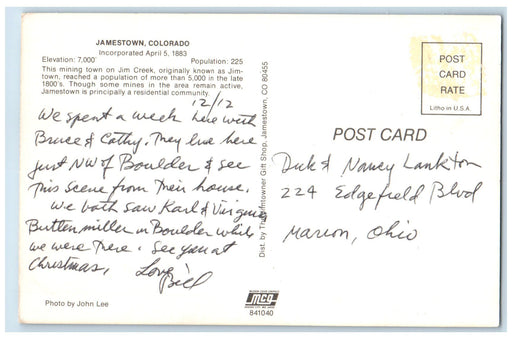 JAMESTOWN, COLORADO
Incorporated April 5, 1883
Elevation: 7,000' Population: 225
This mining town on Jim Creek, originally known as Jim-
town, reached a population of more than 5,000 in the late
1800's. Though some mines in the area remain active,
Jamestown is principally a residential community.
12/12
We spent a week here with
Bruce & Cathy. They live here
just NW of Boulder & see
this scene from their house.
We both saw Karl & Virginia
Buttenmiller in Boulder while
we were there. See you at
Christmas,
Love,
Bill
Photo by John Lee
Dist. by The Jimtowner Gift Shop, Jamestown, CO 80455
MCG
841040
POST
CARD
RATE
Litho in U.S.A.
POST CARD
Dick & Nancy Lankton
224 Edgefield Blvd
Marion, Ohio